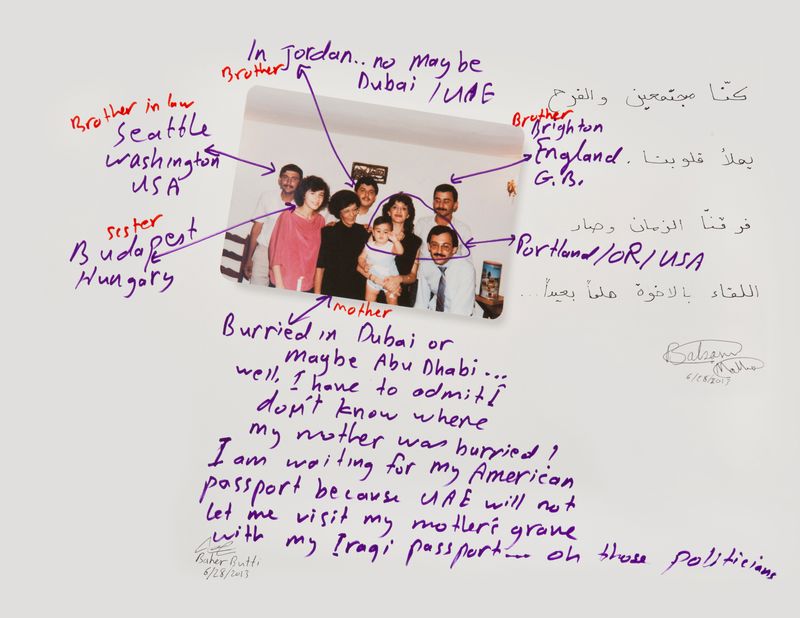 In Jordan.. no maybe
Dubai /UAE
Brother
Brother in law
Seattle
Washington
USA
Brother
Brighton
England
G.B.
كنّا مجتمعين والفرح
يملأ قلوبنا.
فرقنّا الزمان وصار
اللقاء بالاخوة حلماً بعيداً...
sister
Budapest
Hungary
Portland/OR/USA
mother
Burried in Dubai or
maybe Abu Dhabi...
well, I have to admit I
don't know where
my mother was burried!
I am waiting for my American
passport because UAE will not
let me visit my mother's grave
with my Iraqi passport — oh those politicians
Baher Butti
6/28/2013
Balsam
6/28/2013